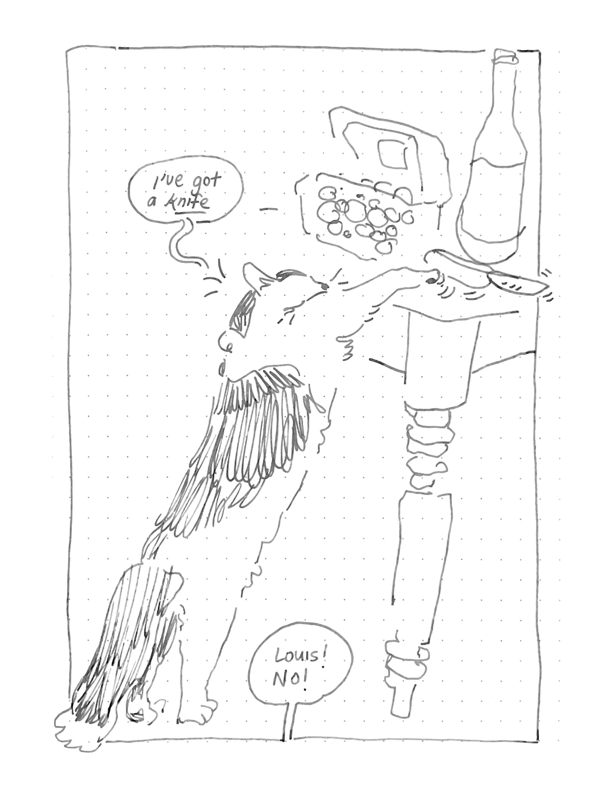 I've got
a knife
Louis!
No!